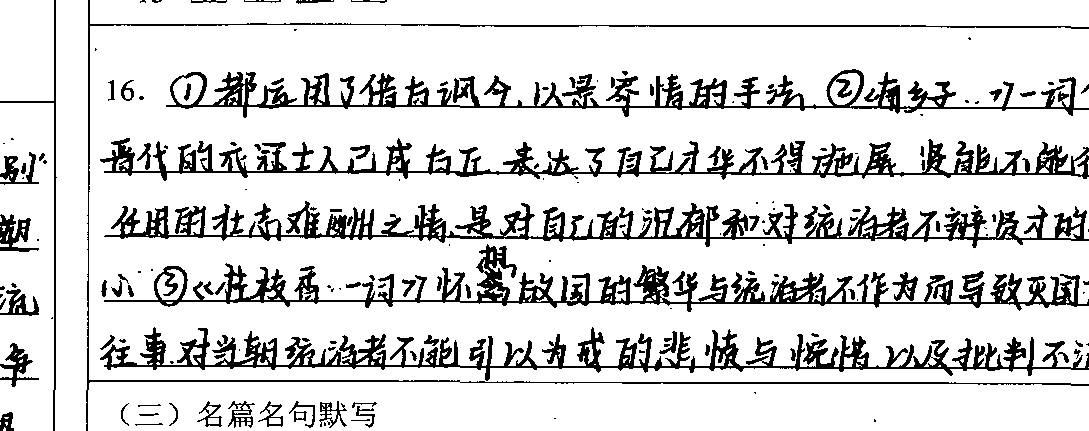 别"
朝
流
年
16. ①都运用了借古讽今,以景寄情的手法.②《南乡子…》一词
晋代的衣冠士人已成古丘.表达了自己才华不得施展.贤能不能
任用的壮志难酬之情.是对自己的沉郁和对统治者不辨贤才的
③《桂枝香…一词》怀想故国的繁华与统治者不作为而导致灭国
往事.对当朝统治者不能引以为戒的悲愤与惋惜.以及批判不
(三)名篇名句默写